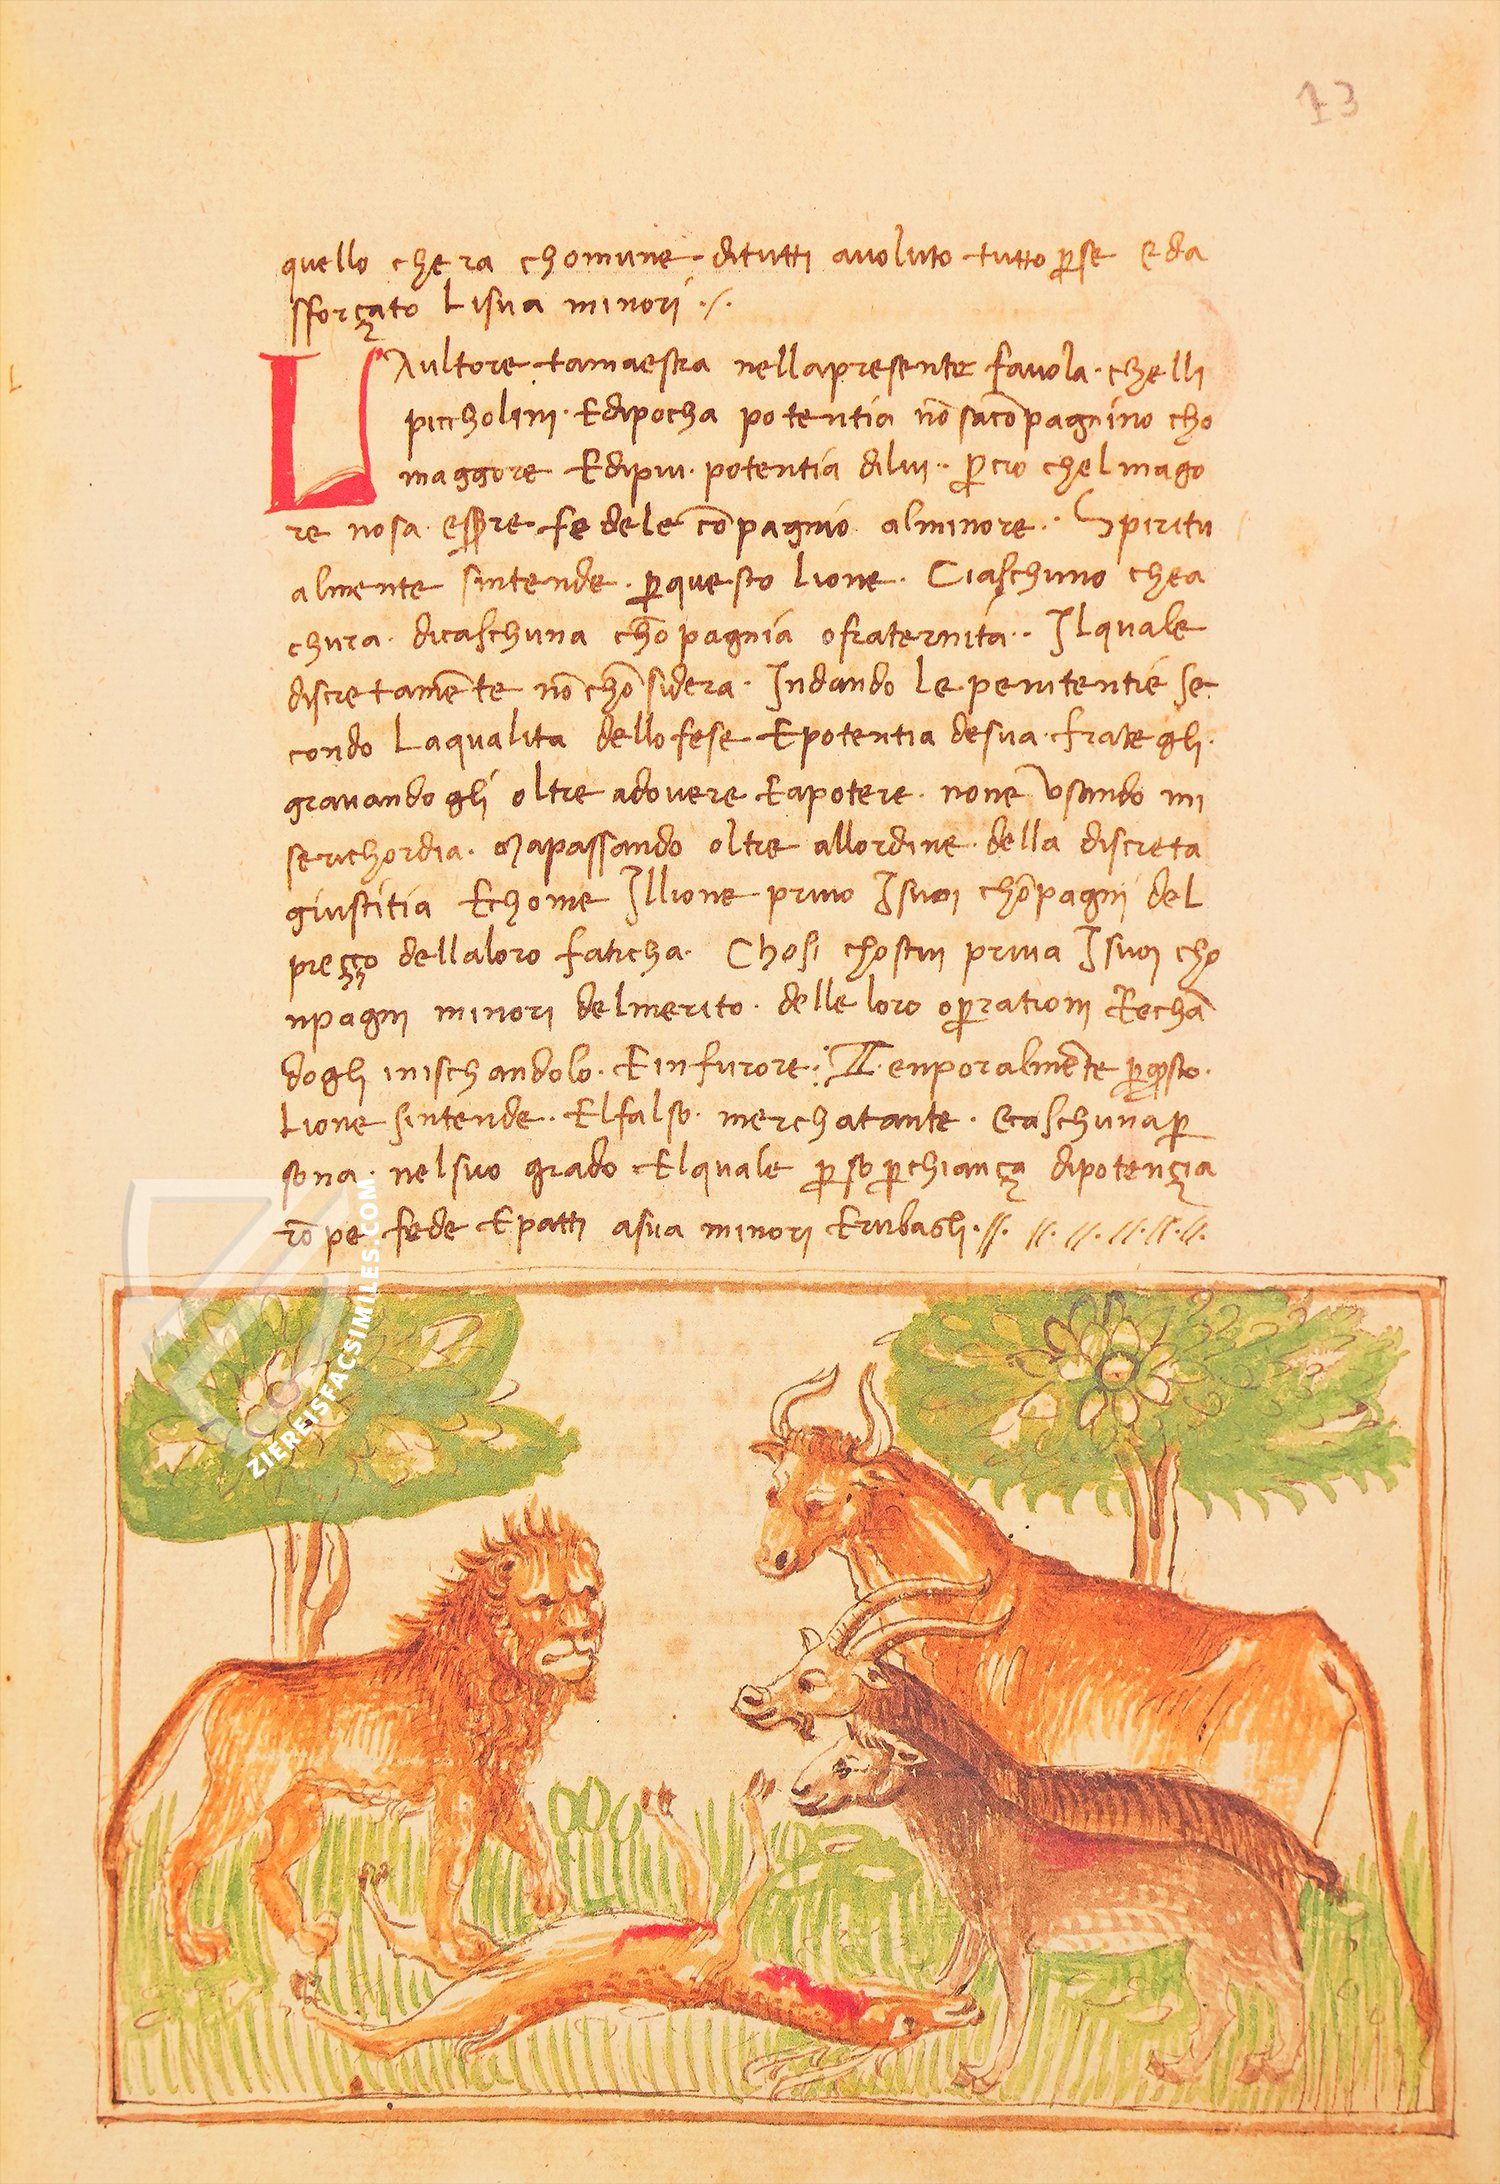 13
quello che ra chomune · ditutti avoluto tutto p̱se e da
sforçato li sua minori ·/·
L Aultore tamaestra nella presente favola · chelli
picicholini · Edipocha potentia nō sacōpagnino cho
maggore Edipiu · potentia dilui · · p̱cio chel mago
re nosa esp̱re fedele cōpagnio alminore · · Spiritu
almente sintende · p̱questo lione · Ciaschuno chea
chura · dicaschuna chōpagnia ofraternita · · Ilquale
discretamēte nō chōsidera · Indando le penitentie se
condo laqualita dellofese Epotentia desua · frategli ·
gravando gli oltre adovere Eapotere · none Usando mi
serichordia · Mapassando oltre allordine · della discreta
giustitia Echome Illione privo I suoi chōpagni del
preçço dellaloro faticha · Chosi chostui priva I suoi cho
npagni minori delmerito · delle loro op̱rationi Rechā
dogli inischandolo · Einfurore · : Tenporalmēte p̱q̄sto ·
Lione sintende · · Elfalso · merchatante · Ecaschuna p̱
sona · nelsuo grado Elquale p̱ sop̱chiança dipotençia
rōpe fede Epatti asua minori Erubagli · //· //· //· //· //· //·
ZIEREISFACSIMILES.COM